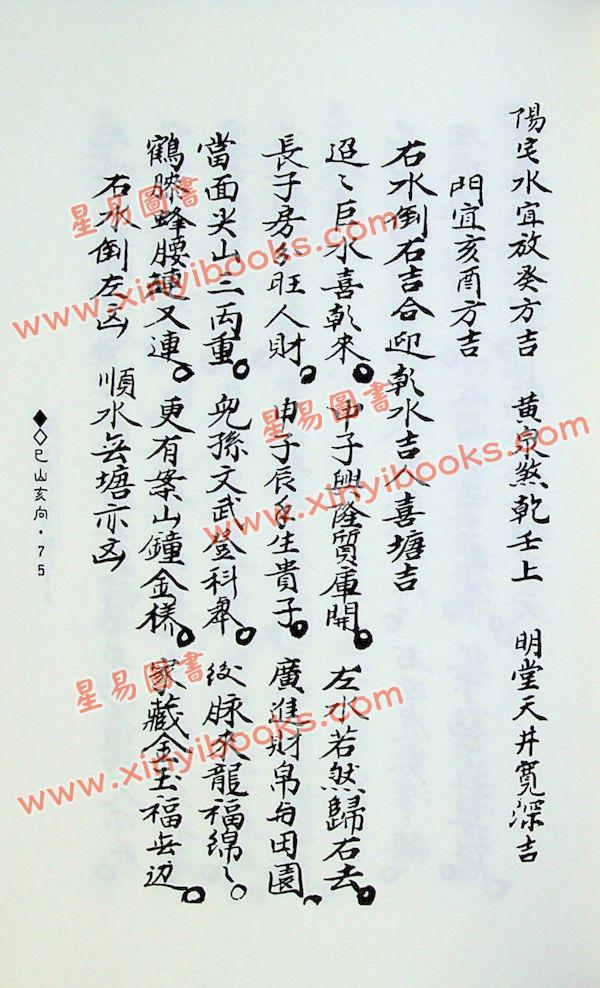 陽宅水宜放癸方吉　黃泉煞乾壬上　明堂天井寬深吉
門宜亥酉方吉
右水倒右吉合迎乾水吉人喜塘吉
迢〻巨水喜乾來。由子興隆質庫開。左水若然歸右去。
長子房分旺人財。申子辰年生貴子。廣進財帛与田園、
當面尖山三両重。兒孫文武登科舉。後脉來龍福綿〻。
鶴膝蜂腰連又連。更有案山鐘金樣。家藏金玉福无辺。
右水倒左凶　順水无塘亦凶
◆◇巳山亥向・75
星易圖書
www.xinyibooks.com
星易圖書
www.xinyibooks.com
星易圖書
www.xinyibooks.com
星易圖書
www.xinyibooks.com